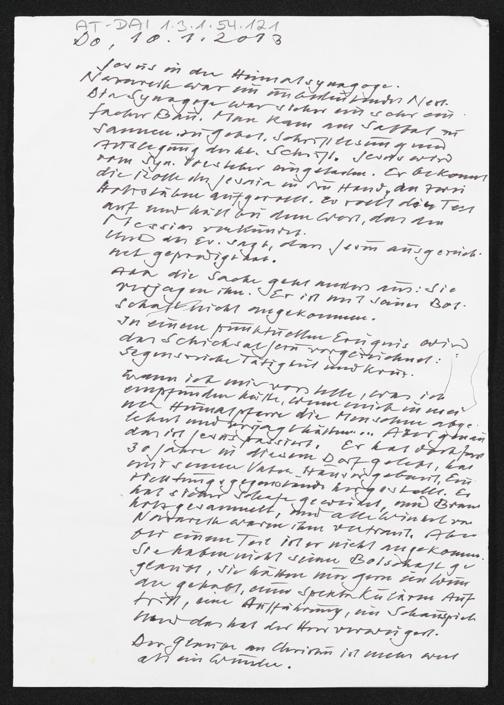 AT-DAI 1.3.1.54.121
Do, 10.1.2013
Jesus in der Heimatsynagoge.
Nazareth war ein unbedeutendes Nest.
Die Synagoge war sicher ein sehr ein-
facher Bau. Man kam am Sabbat zu-
sammen zu Gebet, Schriftlesung und
Auslegung der hl. Schrift. Jesus wird
vom Syn. Vorsteher eingeladen. Er bekommt
die Rolle des Jesaia in die Hand, an zwei
Holzstäben aufgerollt. Er rollt den Text
auf und hält bei dem Wort, das den
Messias verkündet.
Und das Ev. sagt, dass Jesus ausgezeich-
net gepredigt hat.
Aber die Sache geht anders aus: Sie
verjagen ihn. Er ist mit seiner Bot-
schaft nicht angekommen.
In einem punktuellen Ereignis wird
das Schicksal Jesu vorgezeichnet:
Segensreiche Tätigkeit und Kreuz.
Wenn ich mir vorstelle, was ich
empfunden hätte, wenn mich in mei-
ner Heimatpfarre die Menschen abge-
lehnt und verjagt hätten... Aber genau
das ist Jesus passiert. Er hat doch fast
30 Jahre in diesem Dorf gelebt, hat
mit seinem Vater Häuser gebaut, Ein-
richtungsgegenstände hergestellt. Er
hat sicher Schafe geweidet, und Brenn-
holz gesammelt, und alle Winkel von
Nazareth waren ihm vertraut. Aber
bei einem Teil ist er nicht angekommen.
Sie haben nicht seine Botschaft ge-
glaubt, sie hätten nur gern ein Wun-
der gehabt, einen spektakulären Auf-
tritt, eine Aufführung, ein Schauspiel.
Und das hat der Herr verweigert.
Der Glaube an Christus ist mehr wert
als ein Wunder.